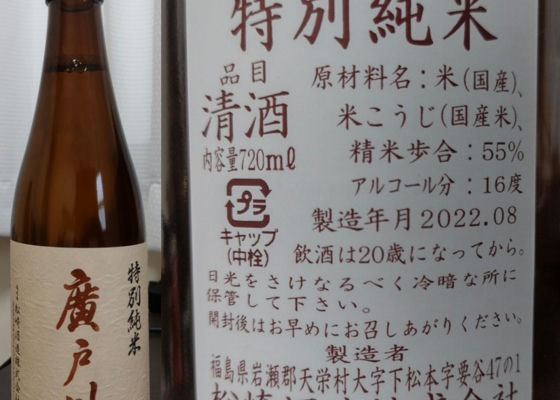 特別純米
廣戸川
松崎酒造株式会社
特別純米
品目
清酒
内容量720mℓ
プラ
キャップ
(中栓)
原材料名:米(国産)、
米こうじ(国産米)、
精米歩合:55%
アルコール分:16度
製造年月2022.08
飲酒は20歳になってから。
日光をさけなるべく冷暗な所に
保管して下さい。
開封後はお早めにお召しあがりください。
製造者
福島県岩瀬郡天栄村大字下松本字要谷47の1